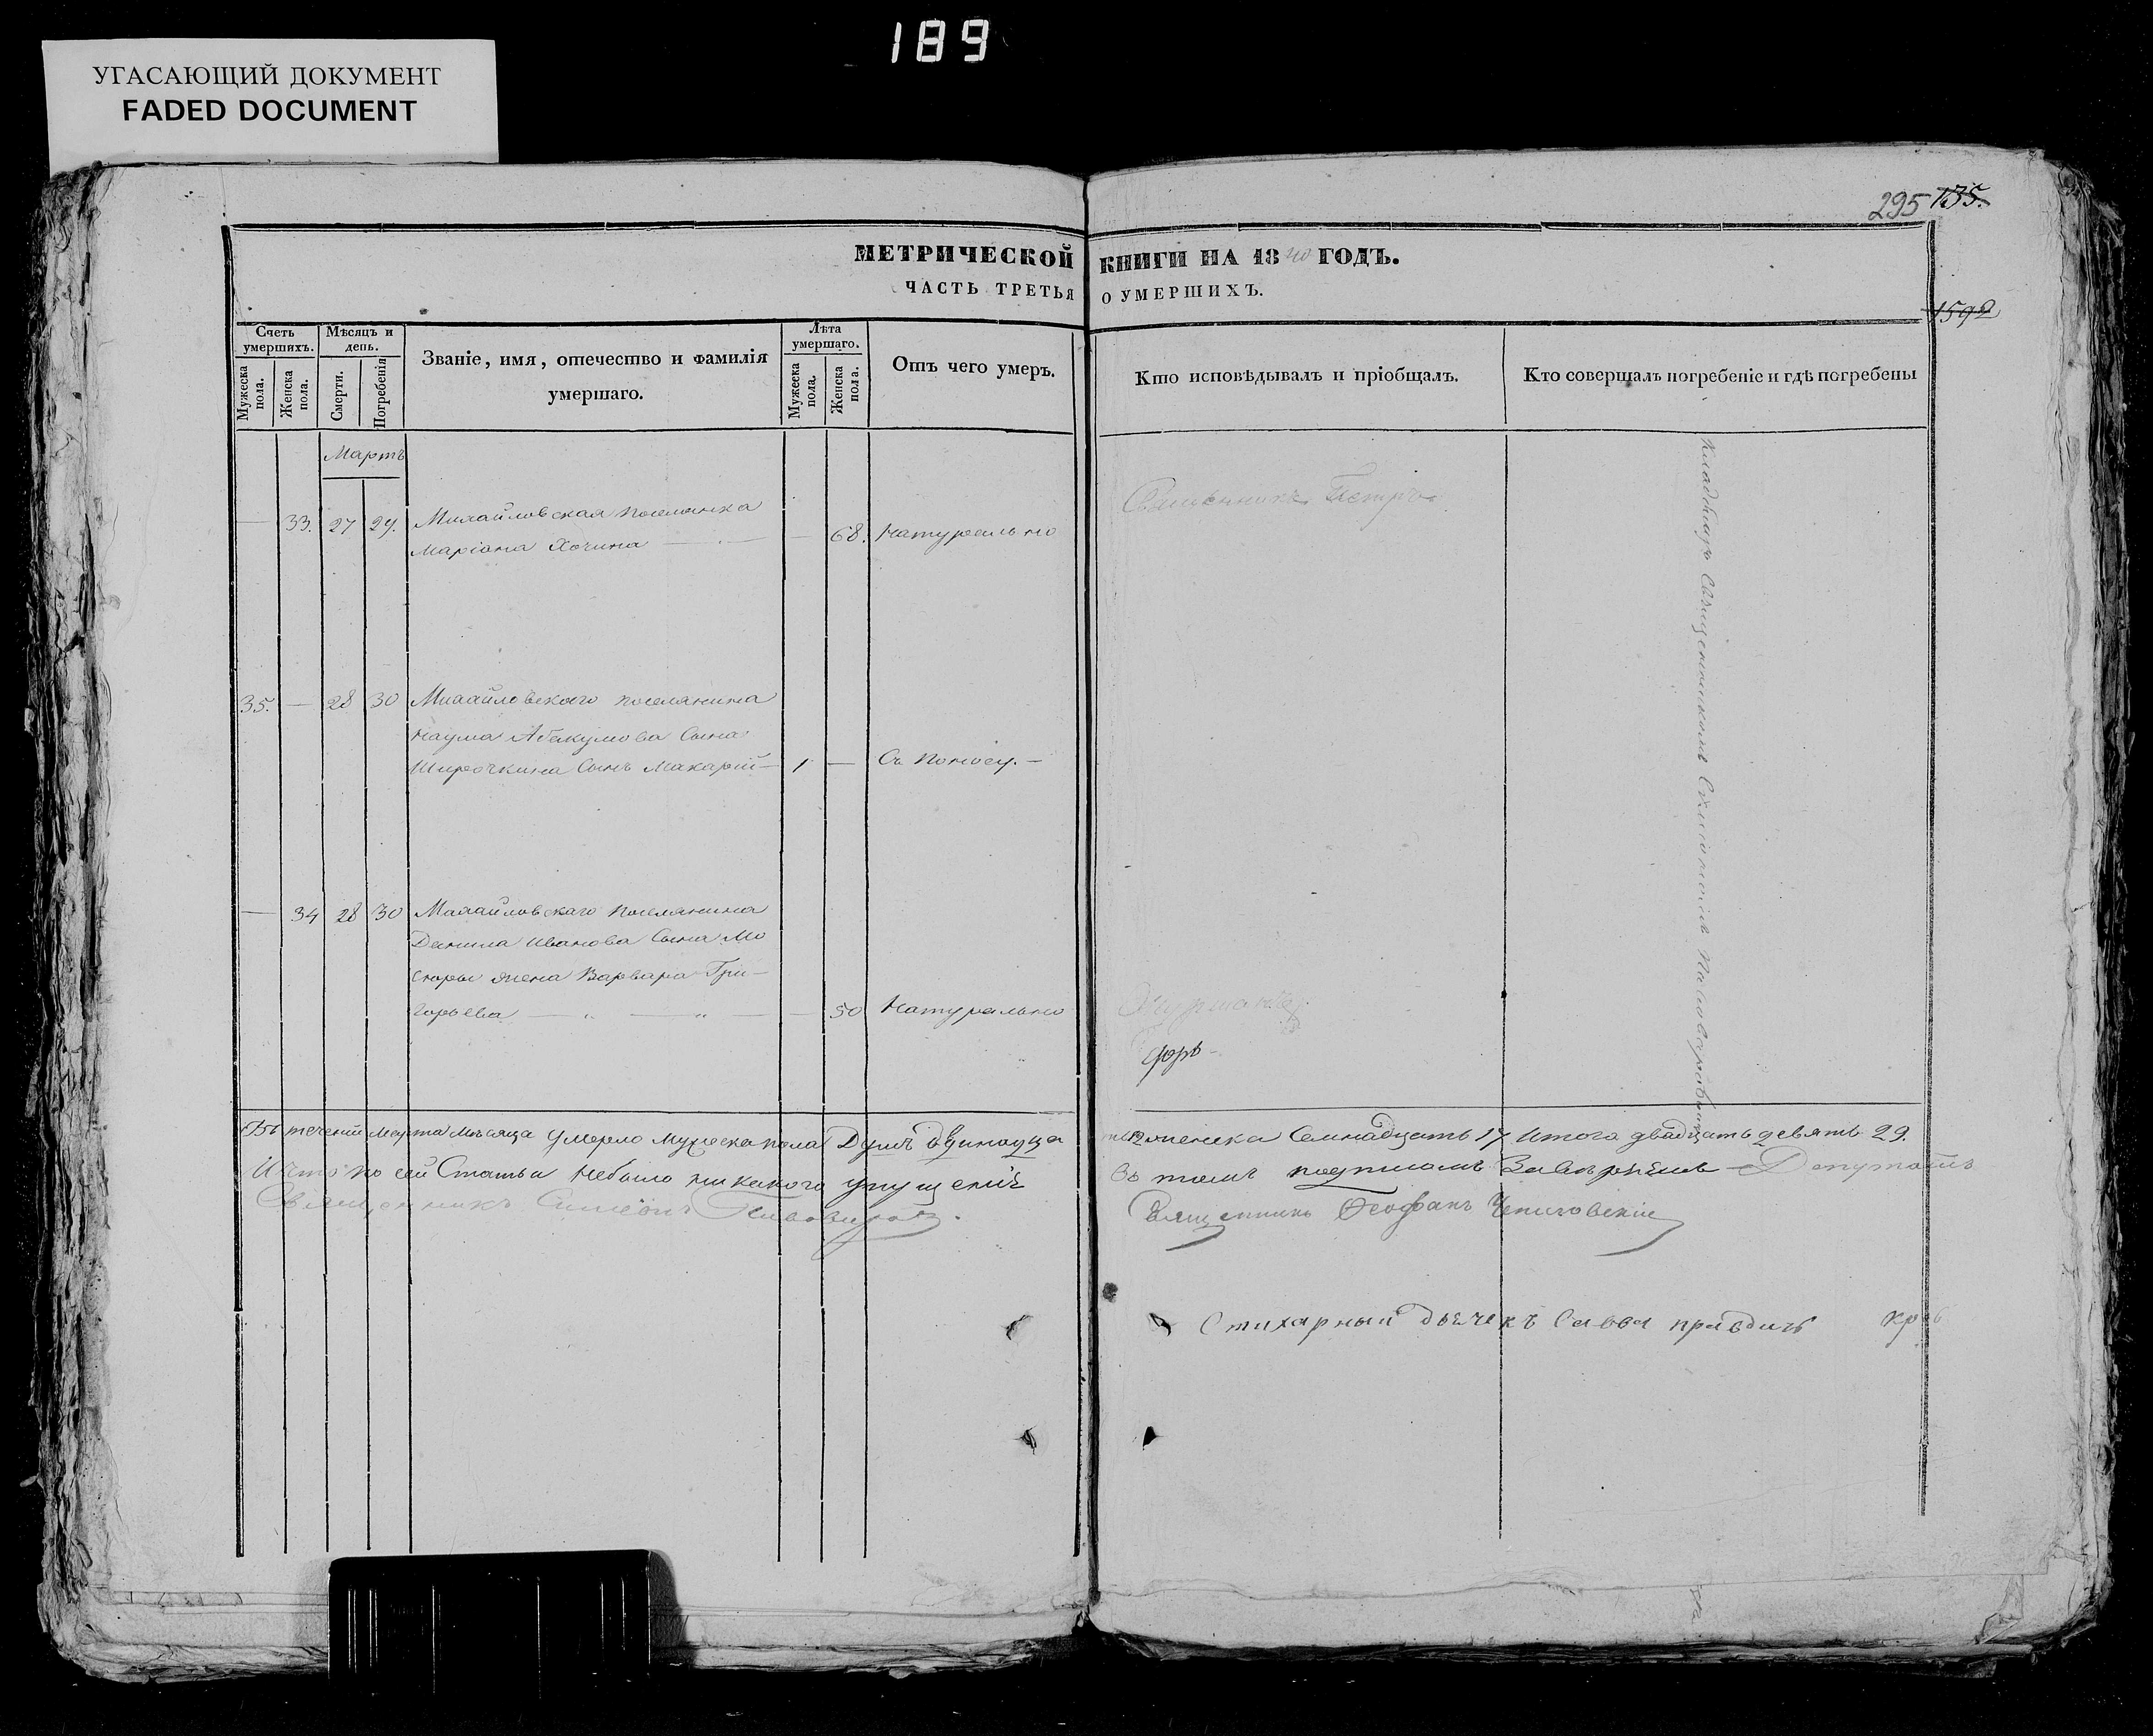 189
УГАСАЮЩИЙ ДОКУМЕНТ
FADED DOCUMENT
295 135.
МЕТРИЧЕСКОЙ КНИГИ НА 1840 ГОДЪ.
ЧАСТЬ ТРЕТЬЯ О УМЕРШИХЪ.
1592
Счетъ умершихъ.
Мужеска пола.
Женска пола.
Мѣсяцъ и день.
Смерти.
Погребенія
Званіе, имя, отечество и фамилія
умершаго.
Лѣта умершаго.
Мужеска пола.
Женска пола.
Отъ чего умеръ.
Кто исповѣдывалъ и пріобщалъ.
Кто совершалъ погребеніе и гдѣ погребены
Мартъ
— 33. 27 29. Михайловская поселянка
Маріана Хочина — — 68. Натурально
Священникъ Петръ
35. — 28 30 Михайловскаго поселянина
Наума Абакумова Сына
Широчкина Сынъ Макарій — 1 — Съ поносу. —
— 34 28 30 Михайловскаго поселянина
Данила Иванова Сына Мо
сюры жена Варвара Гри—
горьева — „ — „ — — 50 Натурально
форъ
Въ теченіи Марта Мѣсяца умерло мужеска пола Душъ двинадца
ть 12 женска Семнадцать 17 Итого двадцать девять 29.
И что по сей Статьи небыло никакого упущенія
въ томъ подписомъ Завѣряемъ Депутатъ
Священникъ Симеонъ Пивоваровъ.
Священникъ Ѳеофанъ
Стихарный дьячекъ Савва правдичъ